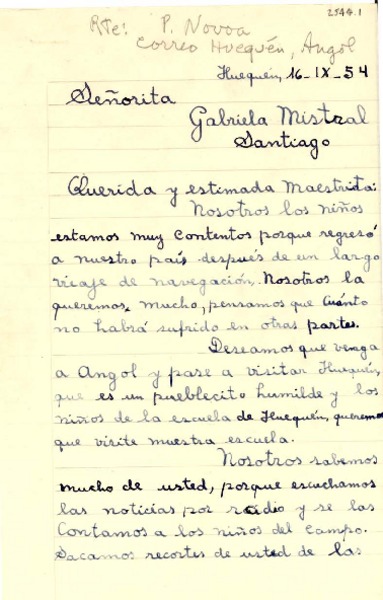 2544.1
Rte: P. Novoa
Correo Huequén, Angol
Huequén, 16-IX-54
Señorita
Gabriela Mistral
Santiago
Querida y estimada Maestrita:
Nosotros los niños
estamos muy contentos porque regresó
a nuestro país después de un largo
viaje de navegación, Nosotros la
queremos mucho, pensamos que cuánto
no habrá sufrido en otras partes.
Deseamos que venga
a Angol y pase a visitar Huequén,
que es un pueblecito humilde y los
niños de la escuela de Huequén, queremos
que visite nuestra escuela.
Nosotros sabemos
mucho de usted, porque escuchamos
las noticias por radio y se las
Contamos a los niños del campo.
Sacamos recortes de usted de las